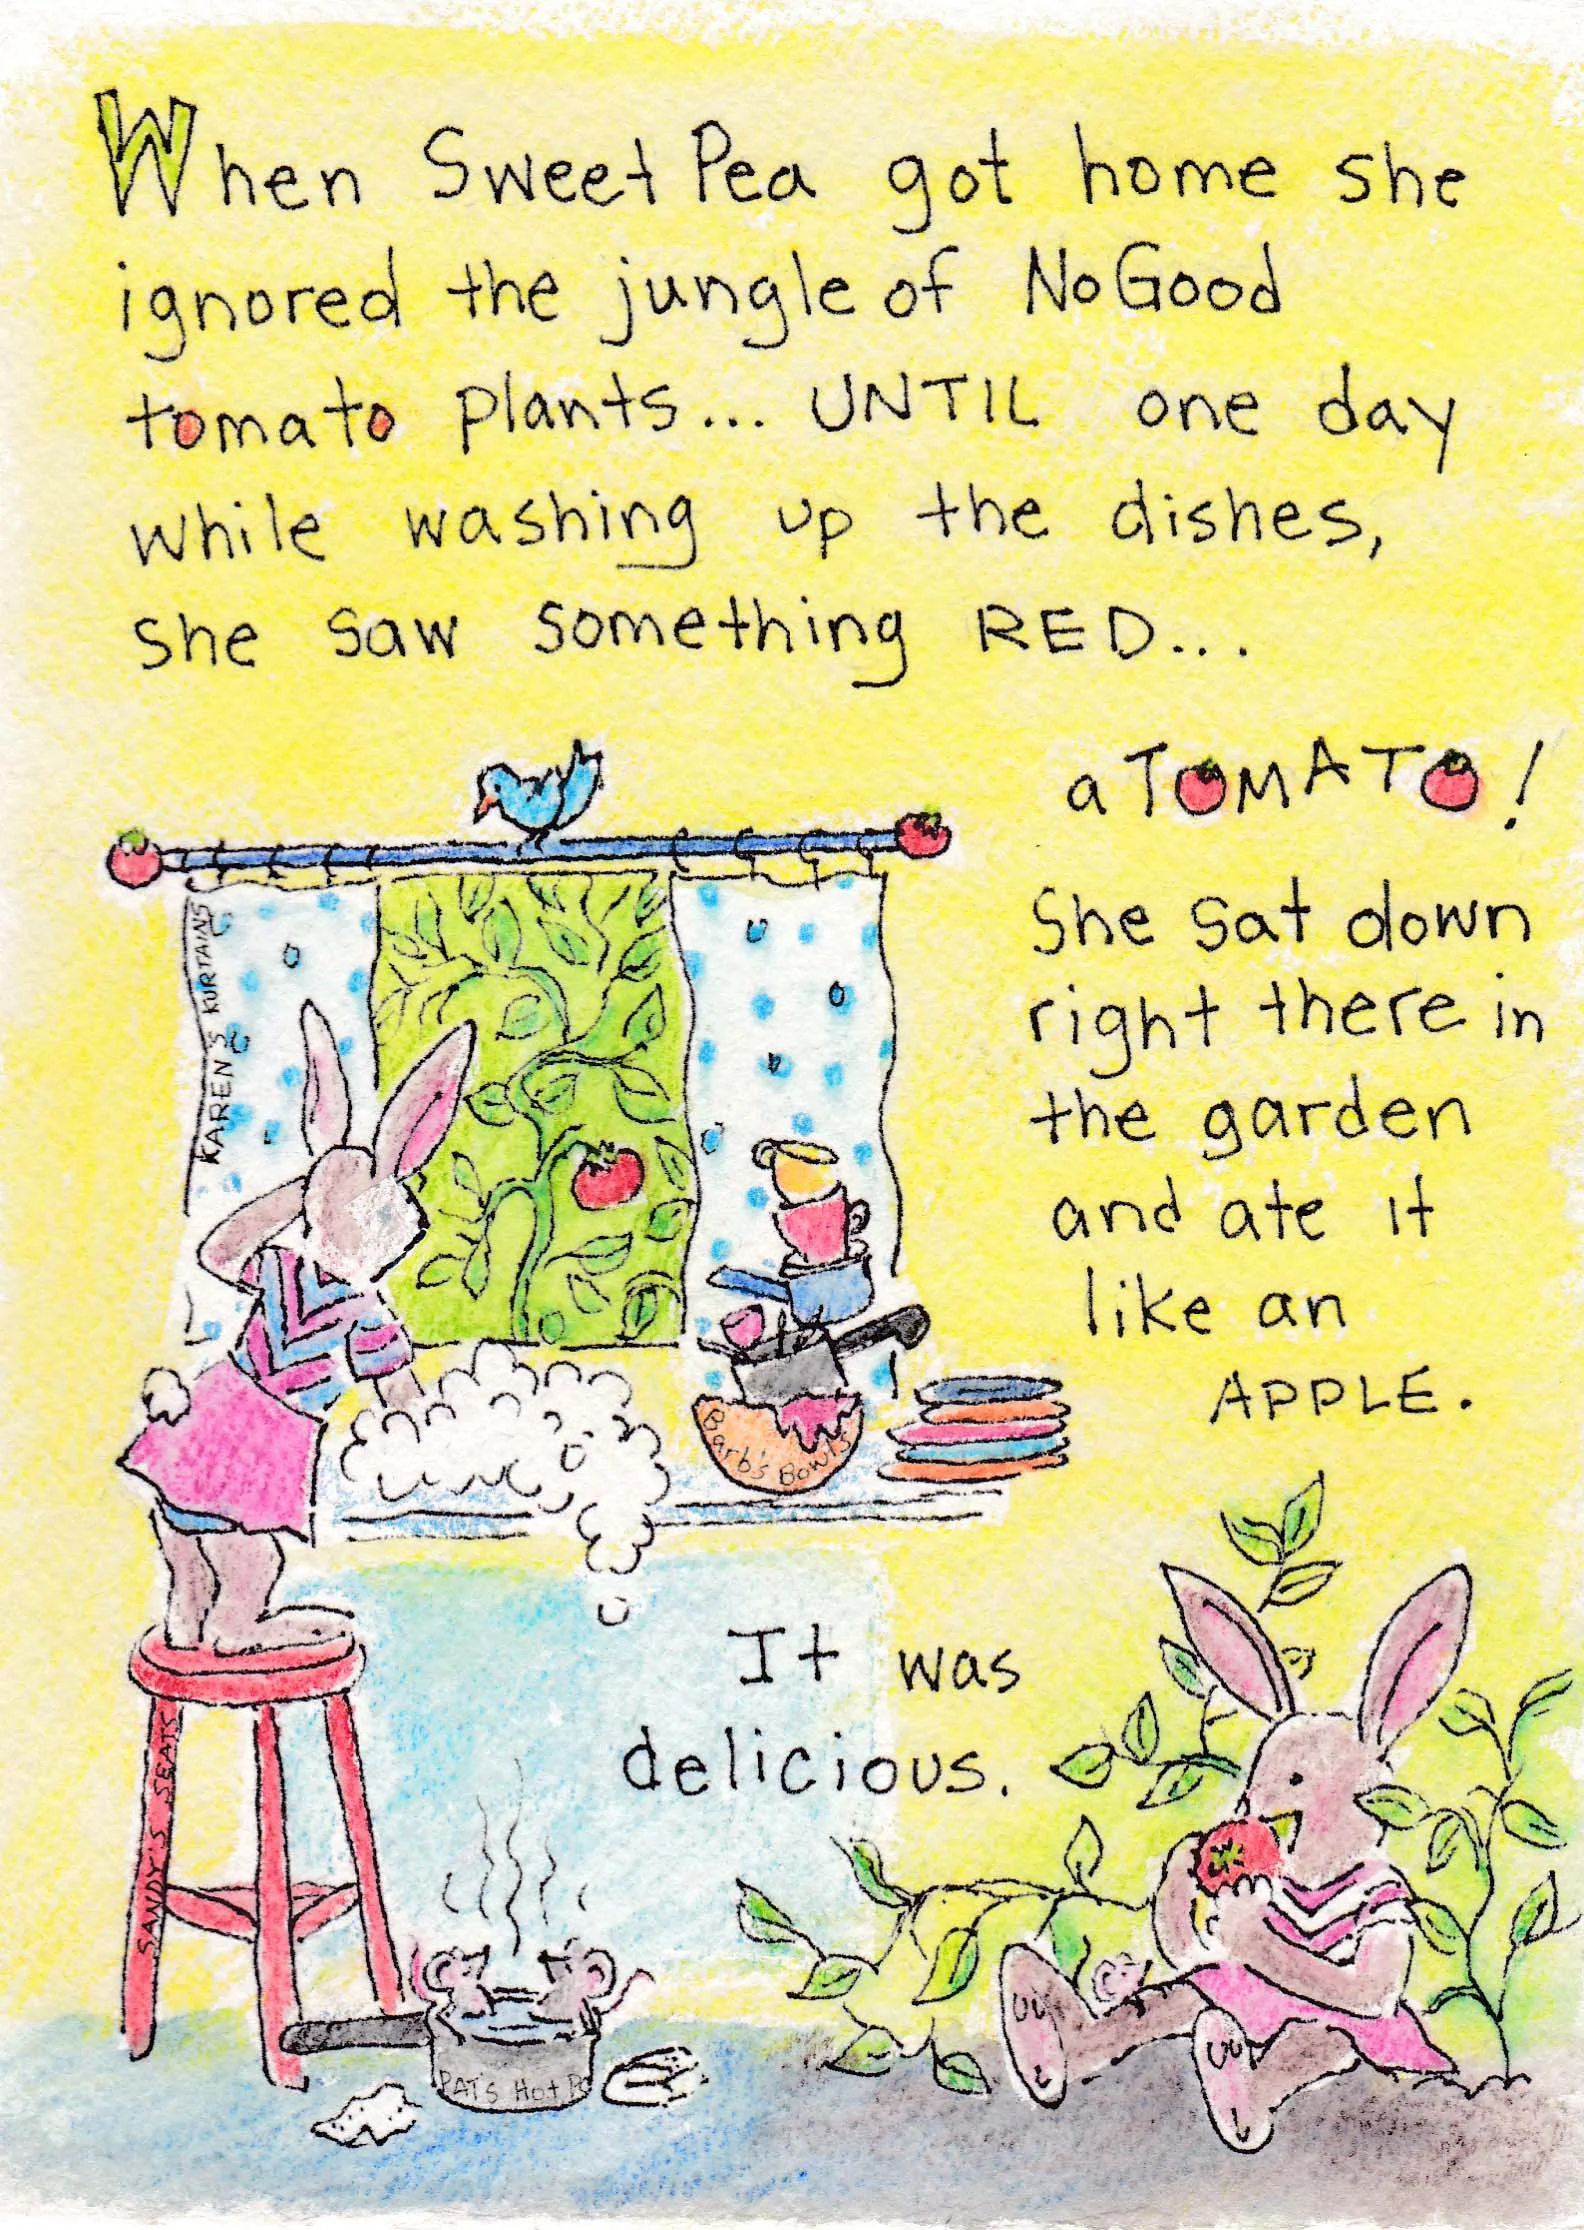 When Sweet Pea got home she
ignored the jungle of NoGood
tomato plants... UNTIL one day
while washing up the dishes,
she saw something RED...
a TOMATO!
She sat down
right there in
the garden
and ate it
like an
APPLE.
KAREN'S KURTAINS
Barb's Bowls
It was
delicious.
SANDY'S SEATS
PAT'S Hot